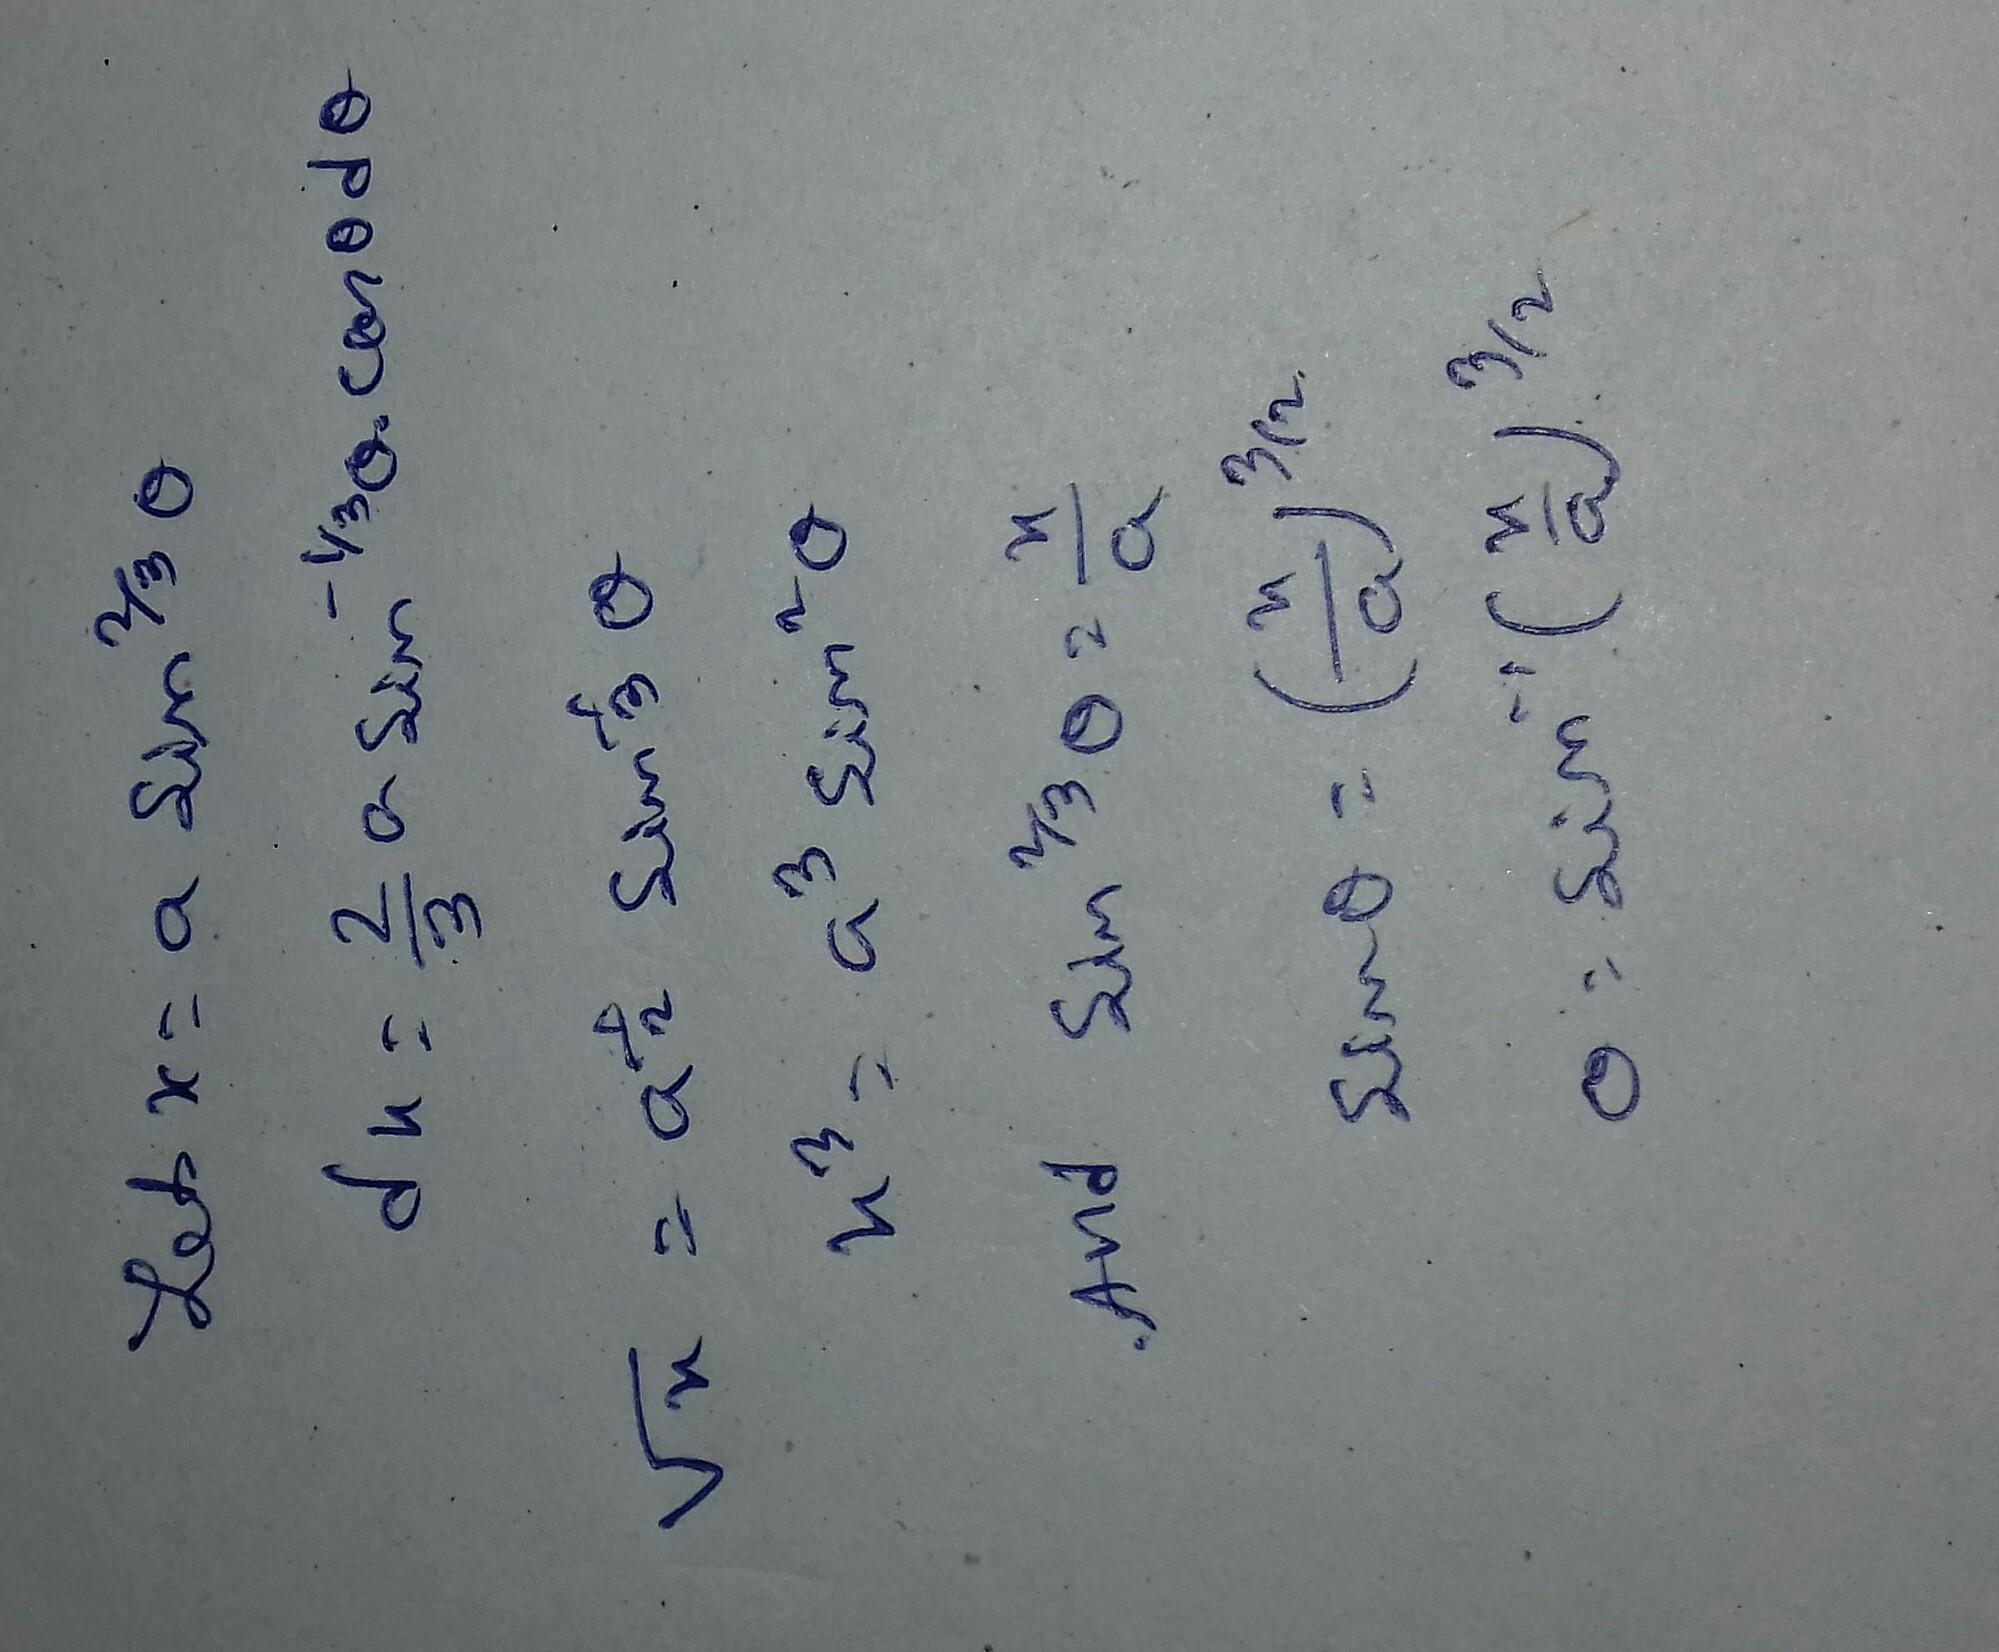 Let x = a sin^{2/3} θ
dx = 2/3 a sin^{-1/3} θ. cos θ d θ
√x = a^{1/2} sin^{1/3} θ
x^3 = a^3 sin^2 θ
And sin^{2/3} θ = x/a
sin θ = (x/a)^{3/2}
θ = sin^{-1} (x/a)^{3/2}